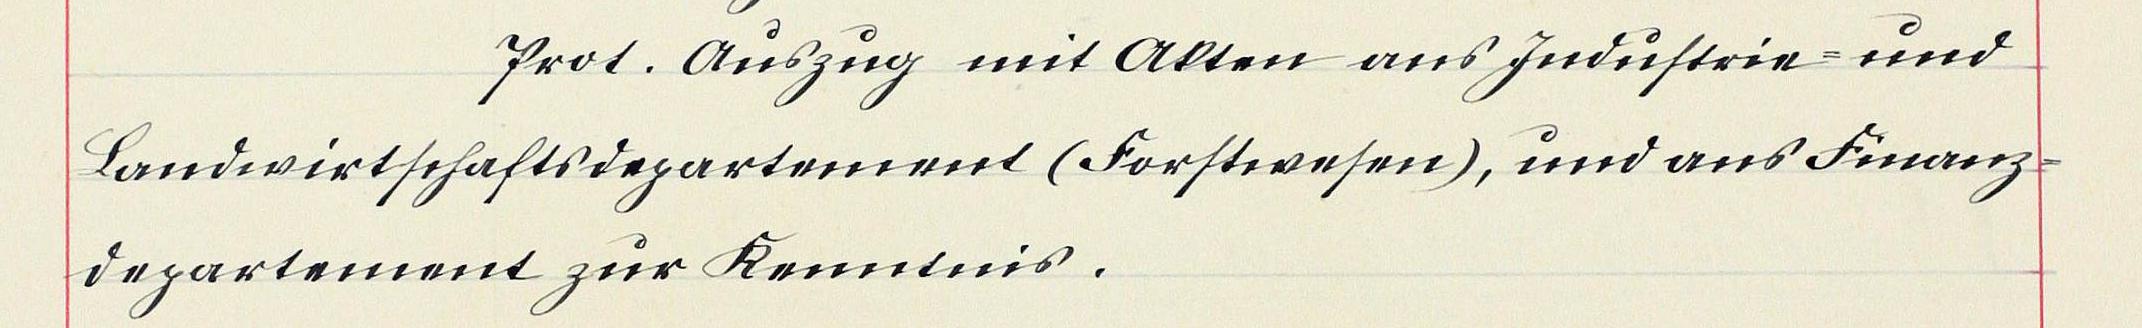 Prot. Auszug mit Akten ans Industrie- und
Landwirtschaftsdepartement (Forstwesen), und ans Finanz-
departement zur Kenntnis.